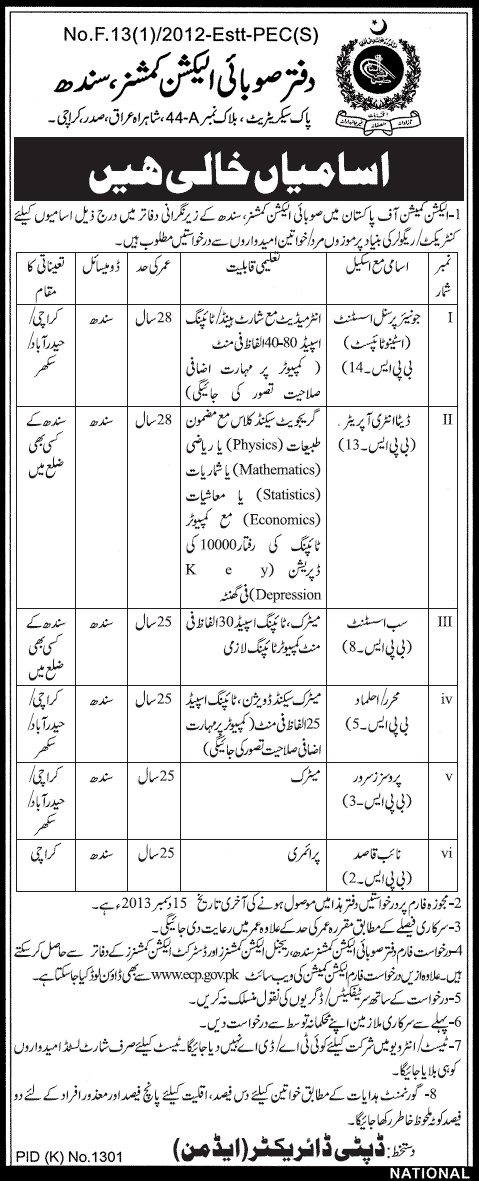 No.F.13(1)/2012-Estt-PEC(S)
دفتر صوبائی الیکشن کمشنر، سندھ
پاک سیکریٹریٹ، بلاک نمبر 44-A، شاہراہ عراق، صدر، کراچی۔
اسامیاں خالی ہیں
1- الیکشن کمیشن آف پاکستان میں صوبائی الیکشن کمشنر، سندھ کے زیر نگرانی دفاتر میں درج ذیل اسامیوں کیلئے
کنٹریکٹ/ریگولر کی بنیاد پر موزوں مرد/خواتین امیدواروں سے درخواستیں مطلوب ہیں۔
نمبر شمار	اسامی مع اسکیل	تعلیمی قابلیت	عمر کی حد	ڈومیسائل	تعیناتی کا مقام
I	جونیئر پرسنل اسسٹنٹ (اسٹینو ٹائپسٹ) بی پی ایس۔14)	انٹرمیڈیٹ مع شارٹ ہینڈ/ٹائپنگ اسپیڈ 80-40 الفاظ فی منٹ (کمپیوٹر پر مہارت اضافی صلاحیت تصور کی جائیگی)	28 سال	سندھ	کراچی/ حیدرآباد/ سکھر
II	ڈیٹا انٹری آپریٹر۔ (بی پی ایس۔13)	گریجویٹ سیکنڈ کلاس مع مضمون طبیعات (Physics) یا ریاضی (Mathematics) یا شماریات (Statistics) یا معاشیات (Economics) مع کمپیوٹر ٹائپنگ کی رفتار 10000 کی ڈپریشن (Key Depression) فی گھنٹہ	28 سال	سندھ	سندھ کے کسی بھی ضلع میں
III	سب اسسٹنٹ (بی پی ایس۔8)	میٹرک، ٹائپنگ اسپیڈ 30 الفاظ فی منٹ کمپیوٹر ٹائپنگ لازمی	25 سال	سندھ	سندھ کے کسی بھی ضلع میں
iv	محرر/اہلمد (بی پی ایس۔5)	میٹرک سیکنڈ ڈویژن، ٹائپنگ اسپیڈ 25 الفاظ فی منٹ (کمپیوٹر پر مہارت اضافی صلاحیت تصور کی جائیگی)	25 سال	سندھ	کراچی/ حیدرآباد/ سکھر
v	پروسز سرور (بی پی ایس۔3)	میٹرک	25 سال	سندھ	کراچی/ حیدرآباد/ سکھر
vi	نائب قاصد (بی پی ایس۔2)	پرائمری	25 سال	سندھ	کراچی
2- مجوزہ فارم پر درخواستیں دفتر ہذا میں موصول ہونے کی آخری تاریخ 15 دسمبر 2013ء ہے۔
3- سرکاری فیصلے کے مطابق مقررہ عمر کی حد کے علاوہ عمر میں رعایت دی جائیگی۔
4- درخواست فارم دفتر صوبائی الیکشن کمشنر سندھ، ریجنل الیکشن کمشنرز اور ڈسٹرکٹ الیکشن کمشنرز کے دفاتر سے حاصل کر سکتے
ہیں۔ علاوہ ازیں درخواست فارم الیکشن کمیشن کی ویب سائٹ www.ecp.gov.pk سے بھی ڈاؤن لوڈ کیا جا سکتا ہے۔
5- درخواست کے ساتھ سرٹیفکیٹس/ڈگریوں کی نقول منسلک نہ کریں۔
6- پہلے سے سرکاری ملازمین اپنے محکمانہ توسط سے درخواست دیں۔
7- ٹیسٹ/انٹرویو میں شرکت کیلئے کوئی ٹی اے/ڈی اے نہیں دیا جائیگا۔ ٹیسٹ کیلئے صرف شارٹ لسٹڈ امیدواروں
کو ہی بلایا جائیگا۔
8- گورنمنٹ ہدایات کے مطابق خواتین کیلئے دس فیصد، اقلیت کیلئے پانچ فیصد اور معذور افراد کے لئے دو
فیصد کوٹہ ملحوظ خاطر رکھا جائیگا۔
دستخط: ڈپٹی ڈائریکٹر (ایڈمن)
PID (K) No.1301
NATIONAL